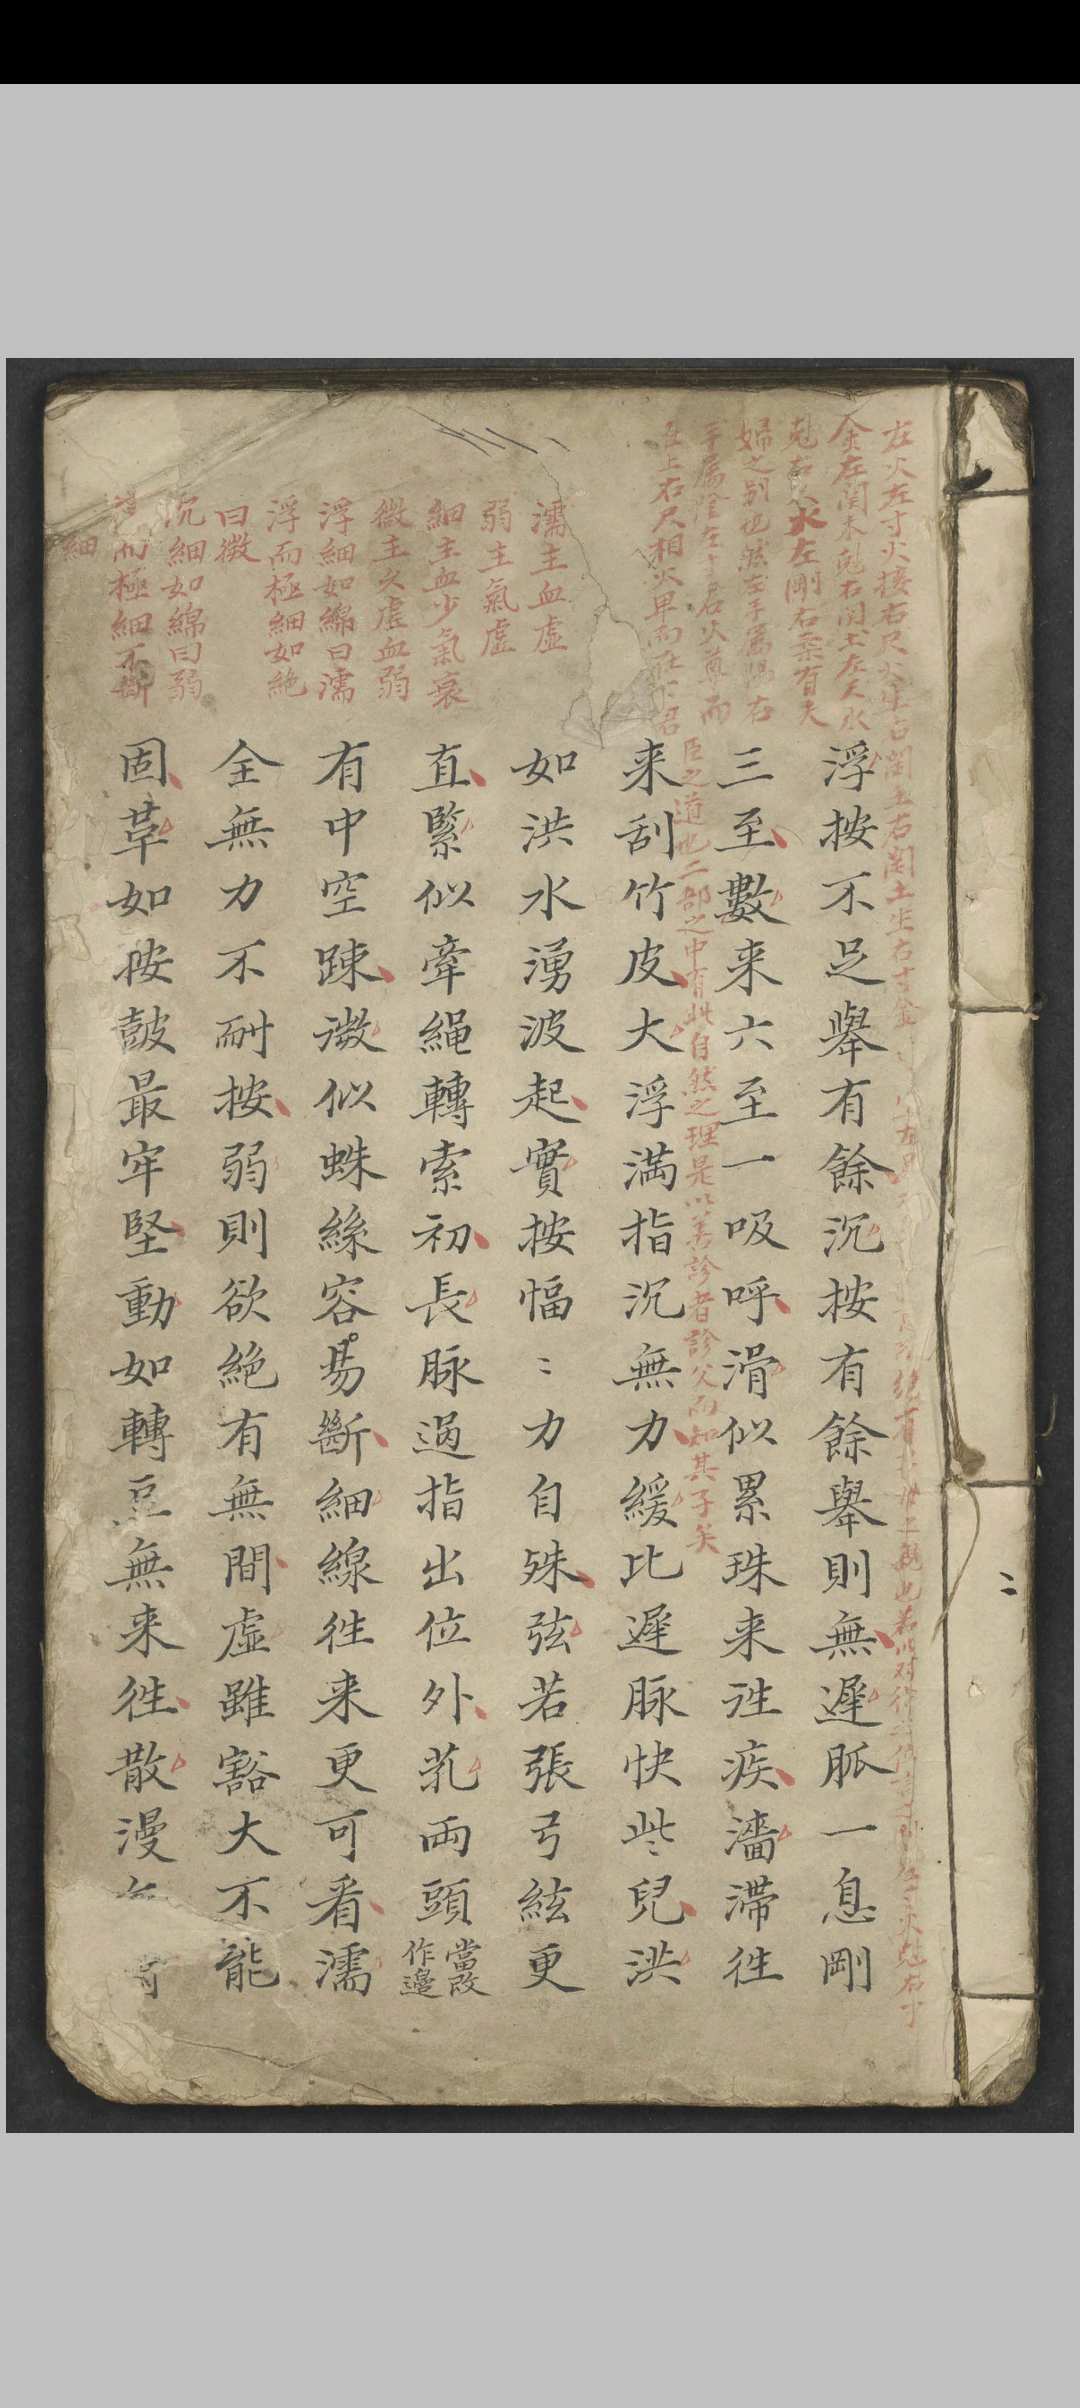 左火左寸火接右尺火生右関土右関土生右寸金
金左関木尅右関土左尺水
尅右尺火水左剛右柔有夫
婦之别也然左手屬陽右
手屬陰左寸君火尊而
在上右尺相火卑而在下君
臣之道也二部之中有此自然之理是以善診者診父而知其子矣
濡主血虛
弱主氣虛
細主血少氣衰
微主久虛血弱
浮細如綿曰濡
浮而極細如絶
曰微
沉細如綿曰弱
而極細不斷
細
浮按不足舉有餘沉按有餘舉則無遲脈一息剛
三至數来六至一吸呼滑似累珠来徃疾濇滯徃
来刮竹皮大浮満指沉無力緩比遲脉快些兒洪
如洪水湧波起實按愊〻力自殊弦若張弓絃更
直緊似牽繩轉索初長脉過指出位外芤兩頭當改作邊
有中空踈微似蛛絲容易斷細線徃来更可看濡
全無力不耐按弱則欲絶有無間虛雖豁大不能
固革如按鼓最牢堅動如轉豆無来徃散漫
二